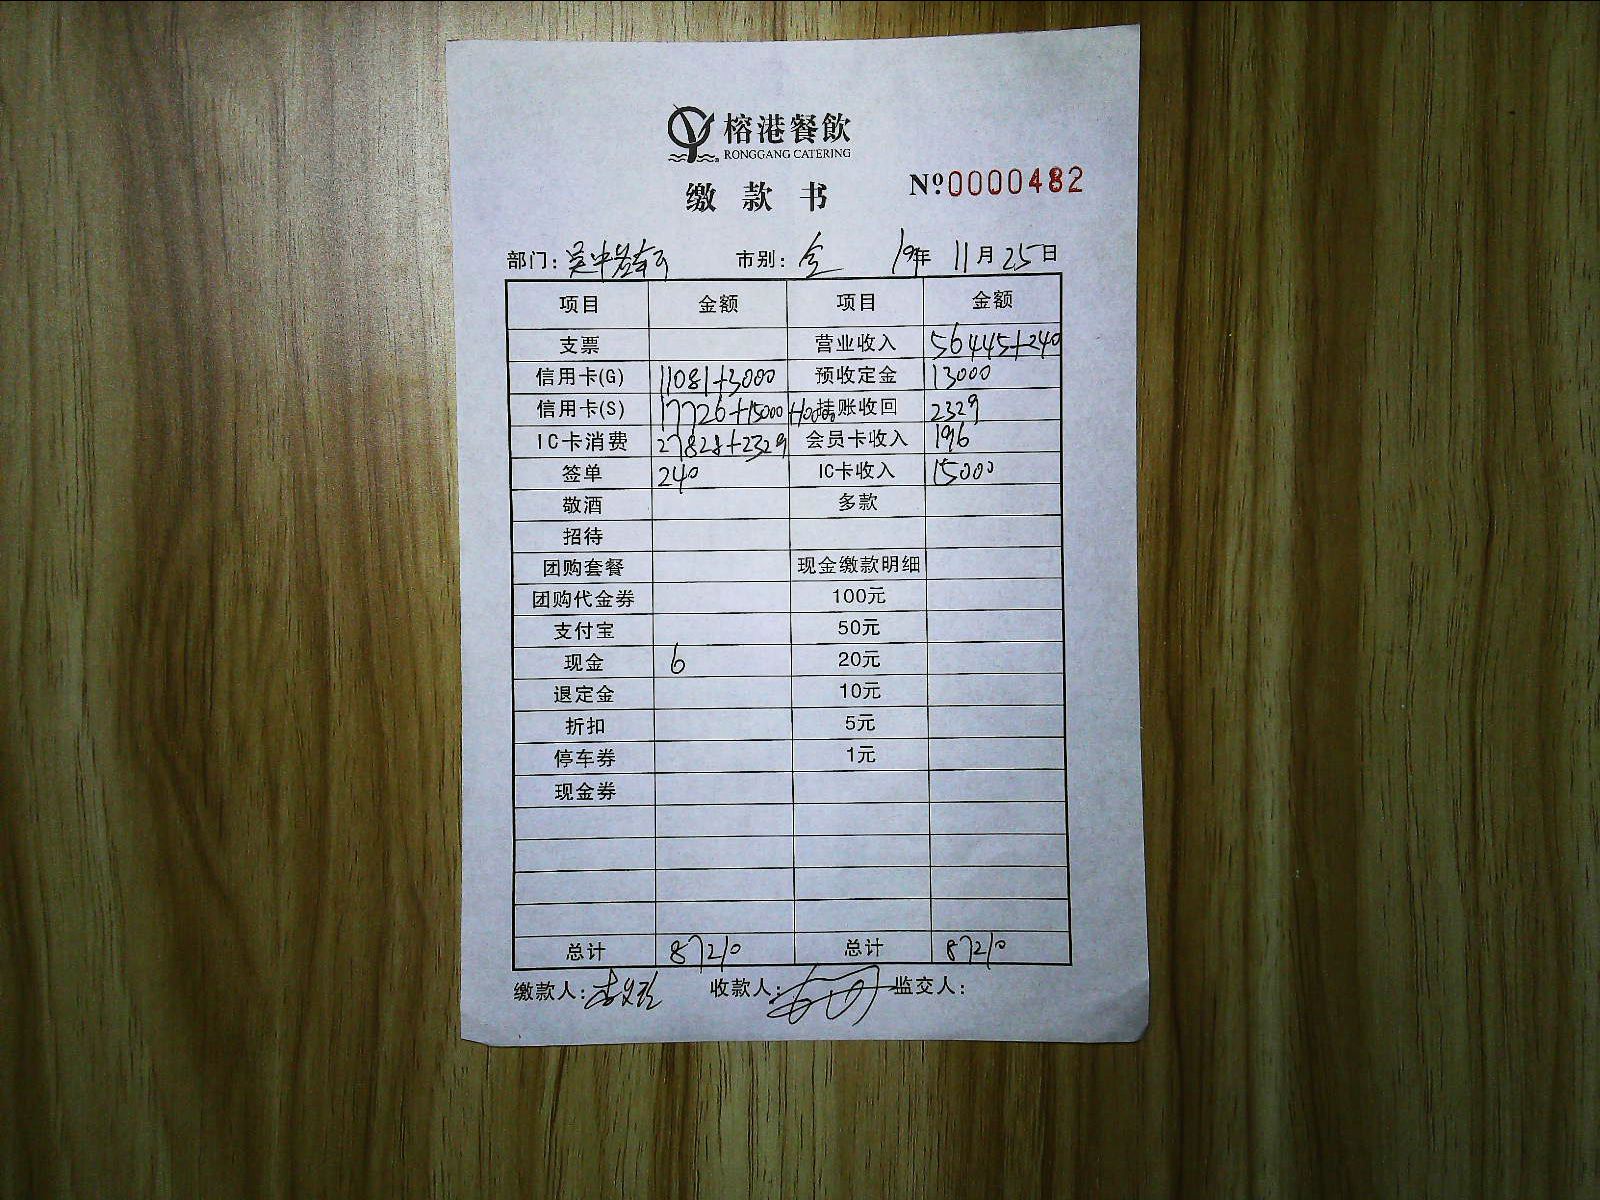 榕港餐飲
RONGGANG CATERING
缴款书
Nº0000482
部门：吴中 市别：全 19年 11月25日
项目 金额 项目 金额
支票 营业收入 56445+240
信用卡(G) 11081+3000 预收定金 13000
信用卡(S) 17726+15000+10000 挂账收回 2329
IC卡消费 27828+2329 会员卡收入 196
签单 240 IC卡收入 15000
敬酒 多款
招待
团购套餐 现金缴款明细
团购代金券 100元
支付宝 50元
现金 6 20元
退定金 10元
折扣 5元
停车券 1元
现金券
总计 87210 总计 87210
缴款人： 收款人： 监交人：